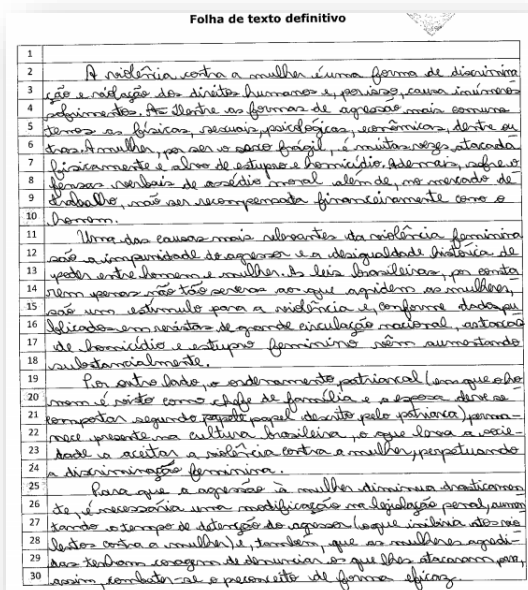 Folha de texto definitivo
1
2 A violência contra a mulher é uma forma de discrimina
3 ção e violação dos direitos humanos e, por isso, causa inúmeros
4 sofrimentos. As dentre as formas de agressão mais comuns
5 temos as físicas, sexuais, psicológicas, econômicas, dentre ou
6 tras. A mulher, por ser o sexo frágil, é muitas vezes atacada
7 fisicamente e alvo de estupro e homicídio. Ademais, sofre o
8 fensas verbais de assédio moral além de, no mercado de
9 trabalho, não ser recompensada financeiramente como o
10 homem.
11 Uma das causas mais relevantes da violência feminina
12 são a impunidade do agressor e a desigualdade histórica de
13 poder entre homem e mulher. As leis brasileiras, por conta
14 rem penas não tão severas aos que agridem as mulheres,
15 são um estímulo para a violência e, conforme dados pu
16 blicados em revistas de grande circulação nacional, os
17 de homicídio e estupro feminino vêm aumentando
18 substancialmente.
19 Por outro lado, o ordenamento patriarcal (em que o ho
20 mem é visto como chefe de família e a esposa deve se
21 comportar segundo papel descrito pelo patriarca) perma-
22 nece presente na cultura brasileira, o que leva a socie-
23 dade a aceitar a violência contra a mulher, perpetuando
24 a discriminação feminina.
25 Para que a agressão à mulher diminua drasticamen
26 te, é necessária uma modificação na legislação penal, aumen
27 tando o tempo de detenção do agressor (o que inibiria atos vio
28 lentos contra a mulher) e, também, que as mulheres agredi-
29 das tenham coragem de denunciar os que lhes atacaram para,
30 assim, combater-se o preconceito de forma eficaz.